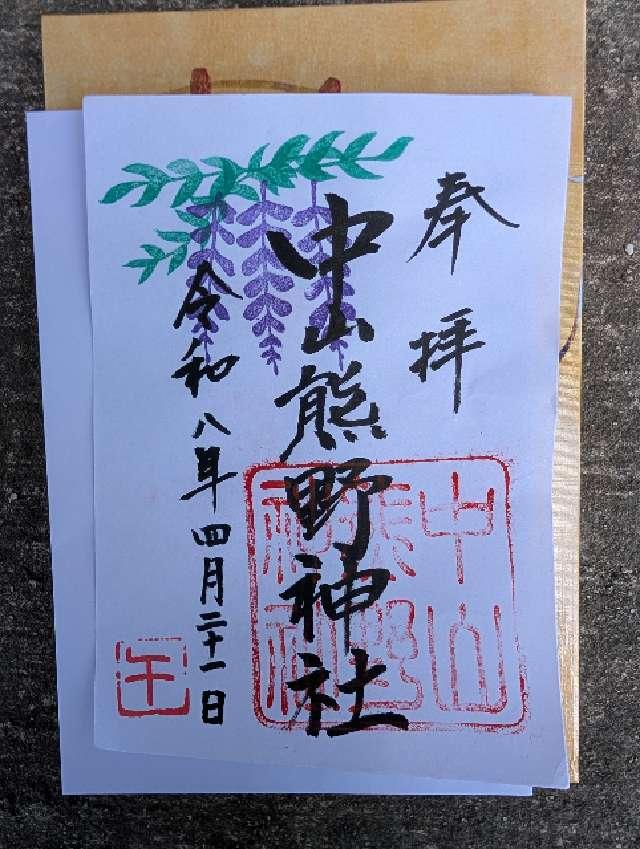 奉拝
中山熊野神社
令和八年四月二十一日
中山
熊野
神社
午